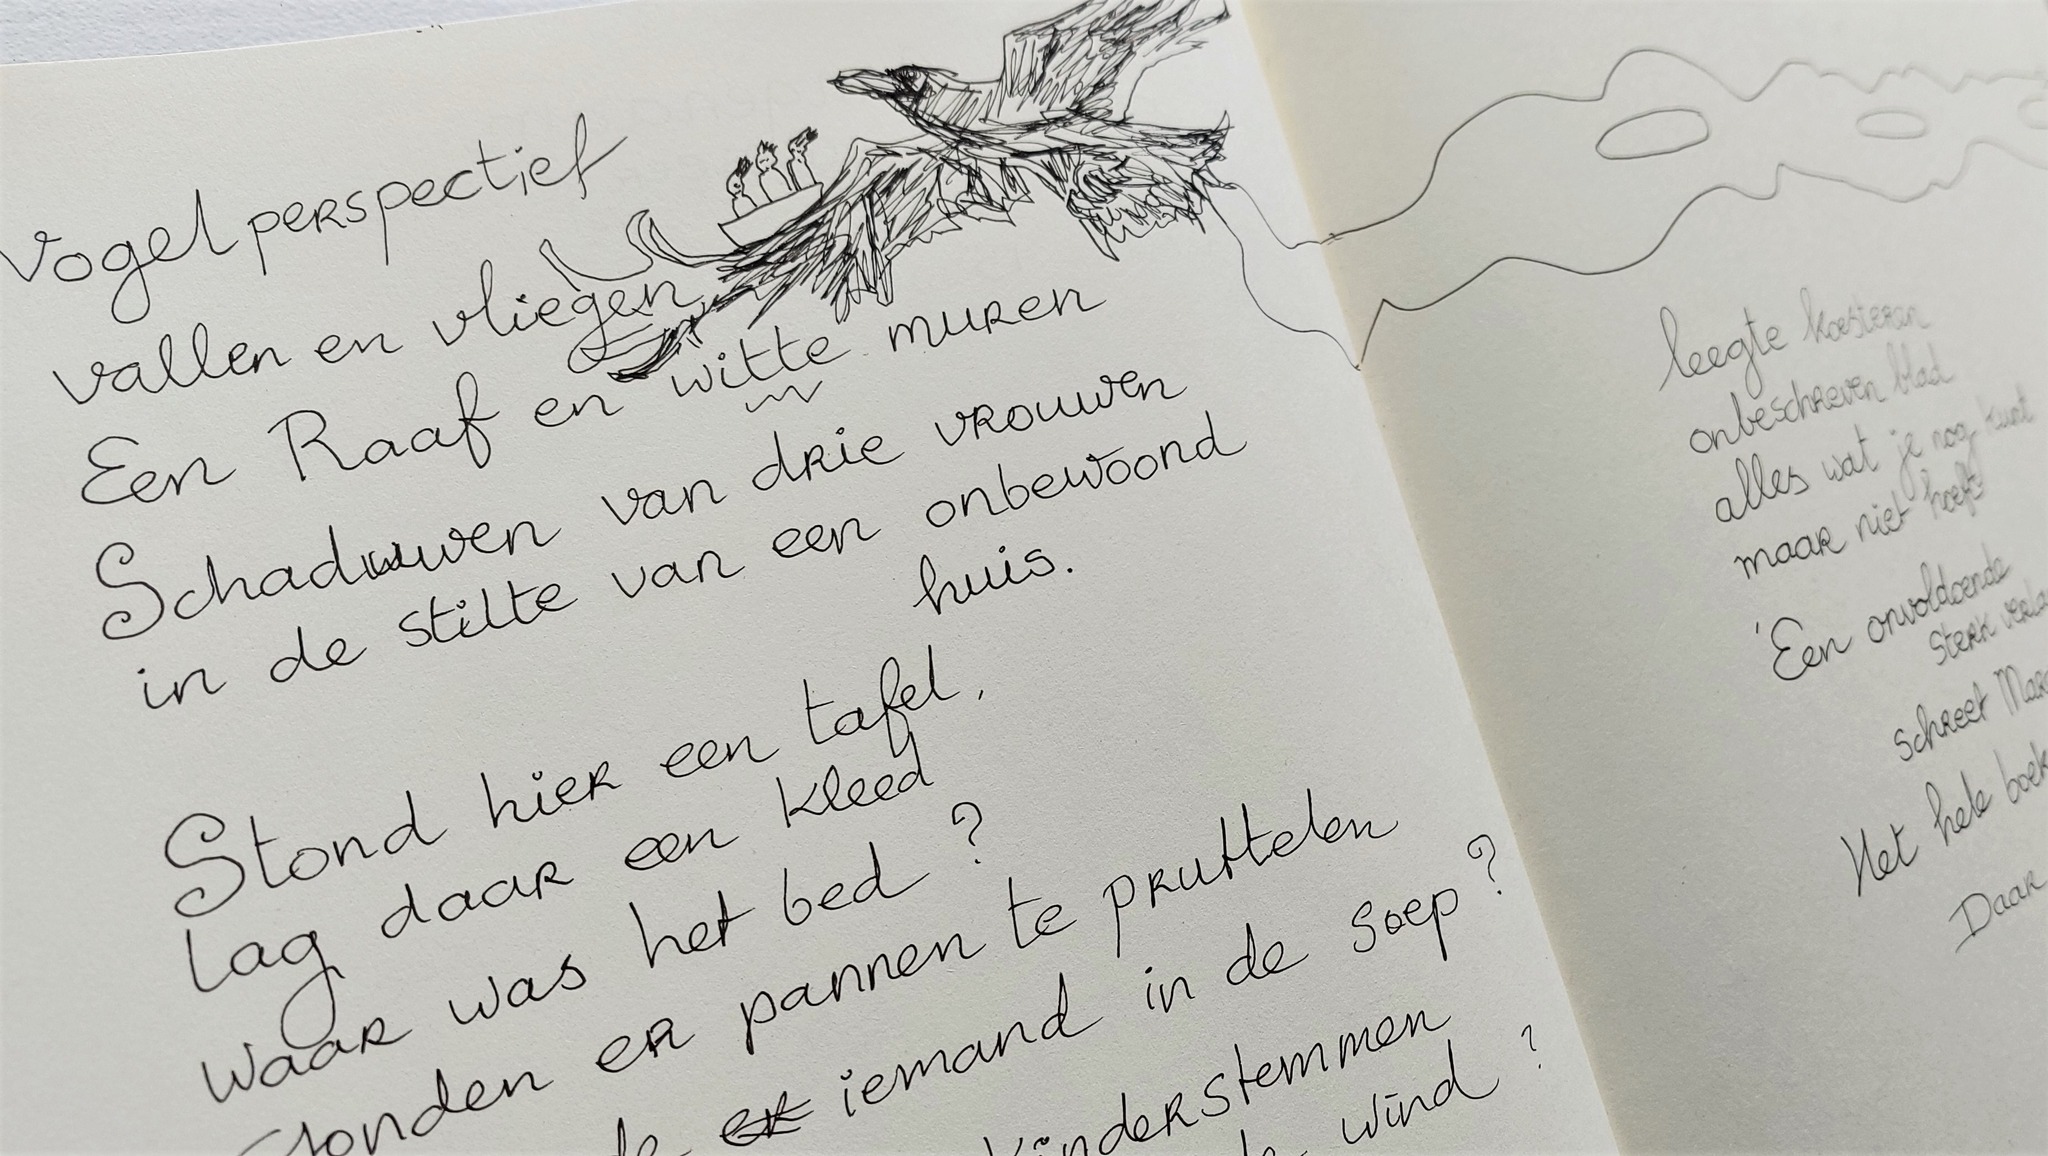 vogelperspectief
vallen en vliegen
Een Raaf en witte muren
Schaduwen van drie vrouwen
in de stilte van een onbewoond
huis.
Stond hier een tafel,
lag daar een kleed
waar was het bed ?
stonden er pannen te pruttelen
iemand in de soep ?
kinderstemmen
wind ?
leegte koesteren
onbeschreven blad
alles wat je nog kunt
maar niet hoeft
'Een onvoldoende
sterk
schreef
Het hele boek
Daar